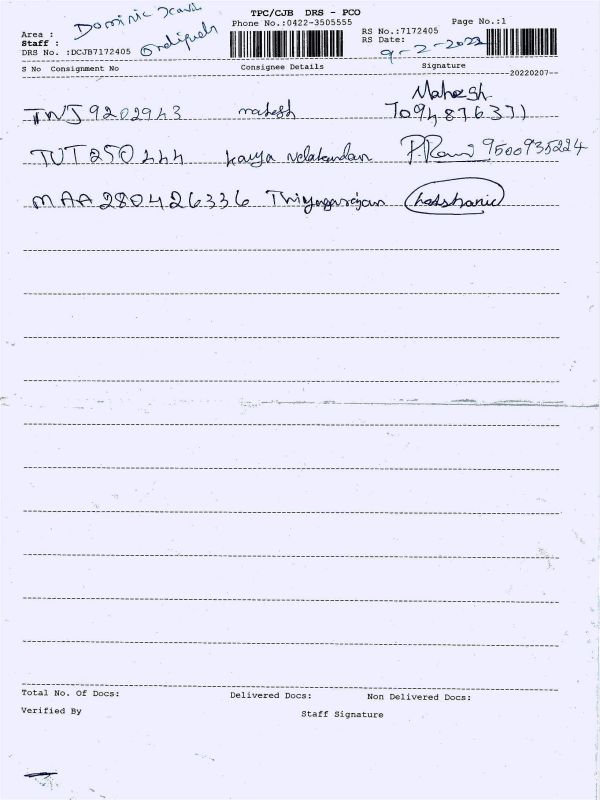 TPC/CJB DRS - PCO
Area : Dominic
Phone No.:0422-3505555
Page No.:1
Staff :
RS No.:7172405
DRS No. :DCJB7172405
RS Date: 9-2-2022
S No Consignment No Consignee Details Signature
--20220207--
TNJ 9202943 mahesh Mahesh
7094876371
TUT 250444 P.Rami 9500935224
MAA 280426336 Thiyagarajan
Total No. Of Docs: Delivered Docs: Non Delivered Docs:
Verified By Staff Signature